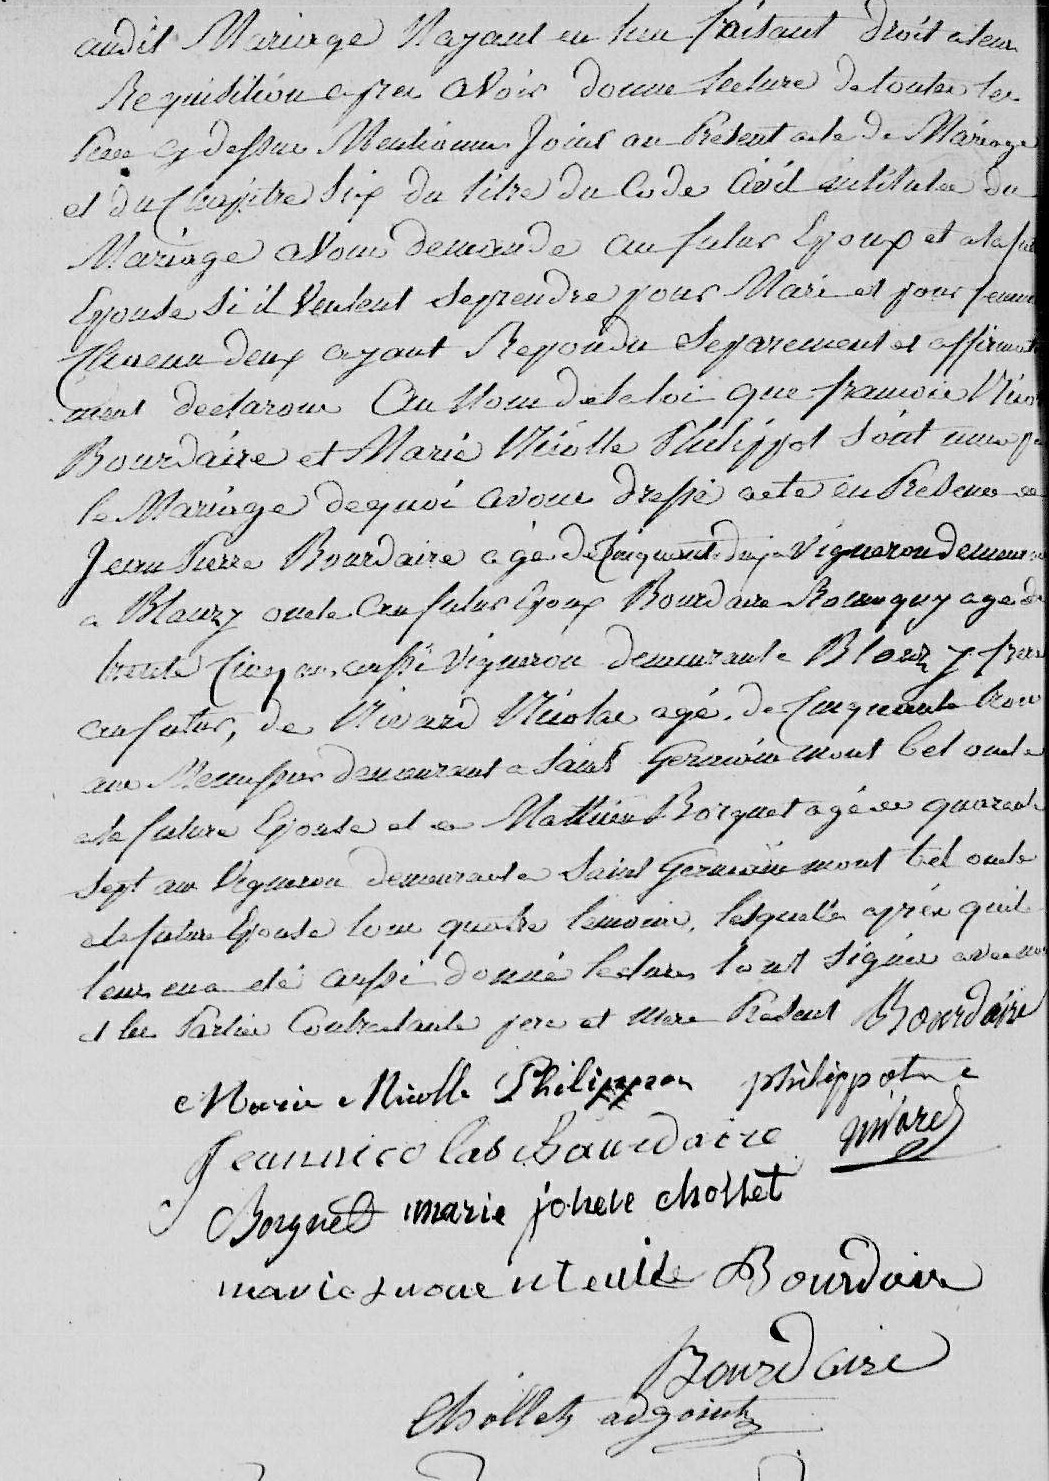 audit Mariage N'ayant eu lieu faisant droit a leur
Requisition apres avoir donne lecture de toutes les
Piece cy dessus Mentionne Joint au Présent acte de Mariage
et du Chapitre Six du titre du Code Civil intitulée du
Mariage avons demande au futur Epoux et a la fut
Epouse Si il Veulent se prendre pour Mari et pour femme
Chacun deux ayant Repondu Separement et affirmati
ment declarons Au Nom de la loi que francois Nico
Bourdaire et Marie Nicolle Philippot Sont unis p
le Mariage de quoi avons dressé acte en Presence de
Jean Pierre Bourdaire agé de Cinquante deux Vigneron demeurant
a Blanzy oncle au futur Epoux Bourdaire agé de
trente Cinq ans aussi Vigneron demeurant a Blanzy frere
au futur, de Nivard Nicolas agé de Cinquante trois
ans Menussier demeurant a Saint Germainmont bel oncle
a la future Epouse et de Mathieu Borgnet agé de quarante
Sept ans Vigneron demeurant a Saint Germainmont bel oncle
a la future Epouse tous quatre temoins, lesquelle après quil
leur en a eté aussi donné lecture l'ont Signée avec nous
et les Parties Contractante pere et mere Présent Bourdaire
Marie Nicolle Philippot philippot
Jean nicolas Bourdaire nivard
Borgnet marie joseve chollet
marie Bourdaire
Bourdaire
Chollet adjoint